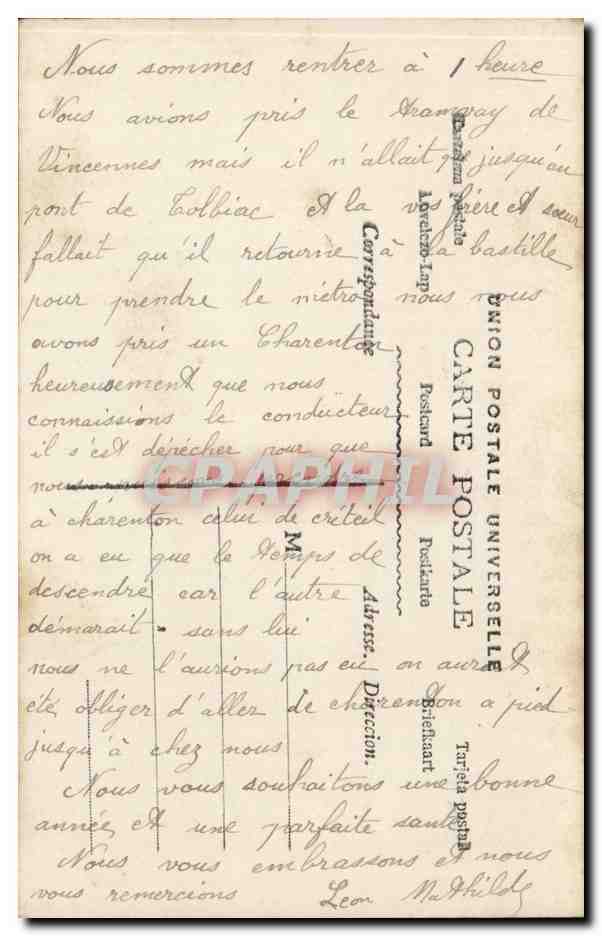 Nous sommes rentrer à 1 heure
Nous avions pris le tramway de
Vincennes mais il n'allait que jusqu'au
pont de Tolbiac et la vos frère et sœur
fallait qu'il retourne à la bastille
pour prendre le métro nous nous
avons pris un Charenton
heureusement que nous
connaissions le conducteur
il s'est dépécher pour que
nous
à charenton celui de créteil
on a eu que le temps de
descendre car l'autre
démarait. sans lui
nous ne l'aurions pas eu on aurait
été obliger d'aller de charenton a pied
jusqu'à chez nous
Nous vous souhaitons une bonne
année et une parfaite santé
Nous vous embrassons et nous
vous remercions Leon Mathilde
UNION POSTALE UNIVERSELLE
CARTE POSTALE
Levelezo-Lap Postcard Postkarte Briefkaart
postale Tarjeta postal
Correspondance Adresse. Direccion.
M
CPAPHIL